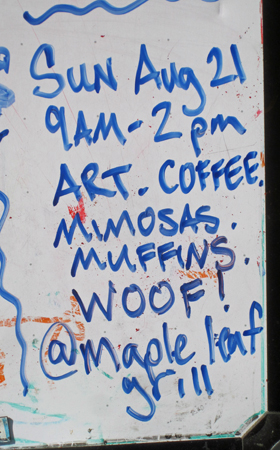 Sun Aug 21
9AM - 2pm
ART. COFFEE.
MIMOSAS.
MUFFINS.
WOOF!
@maple leaf
grill